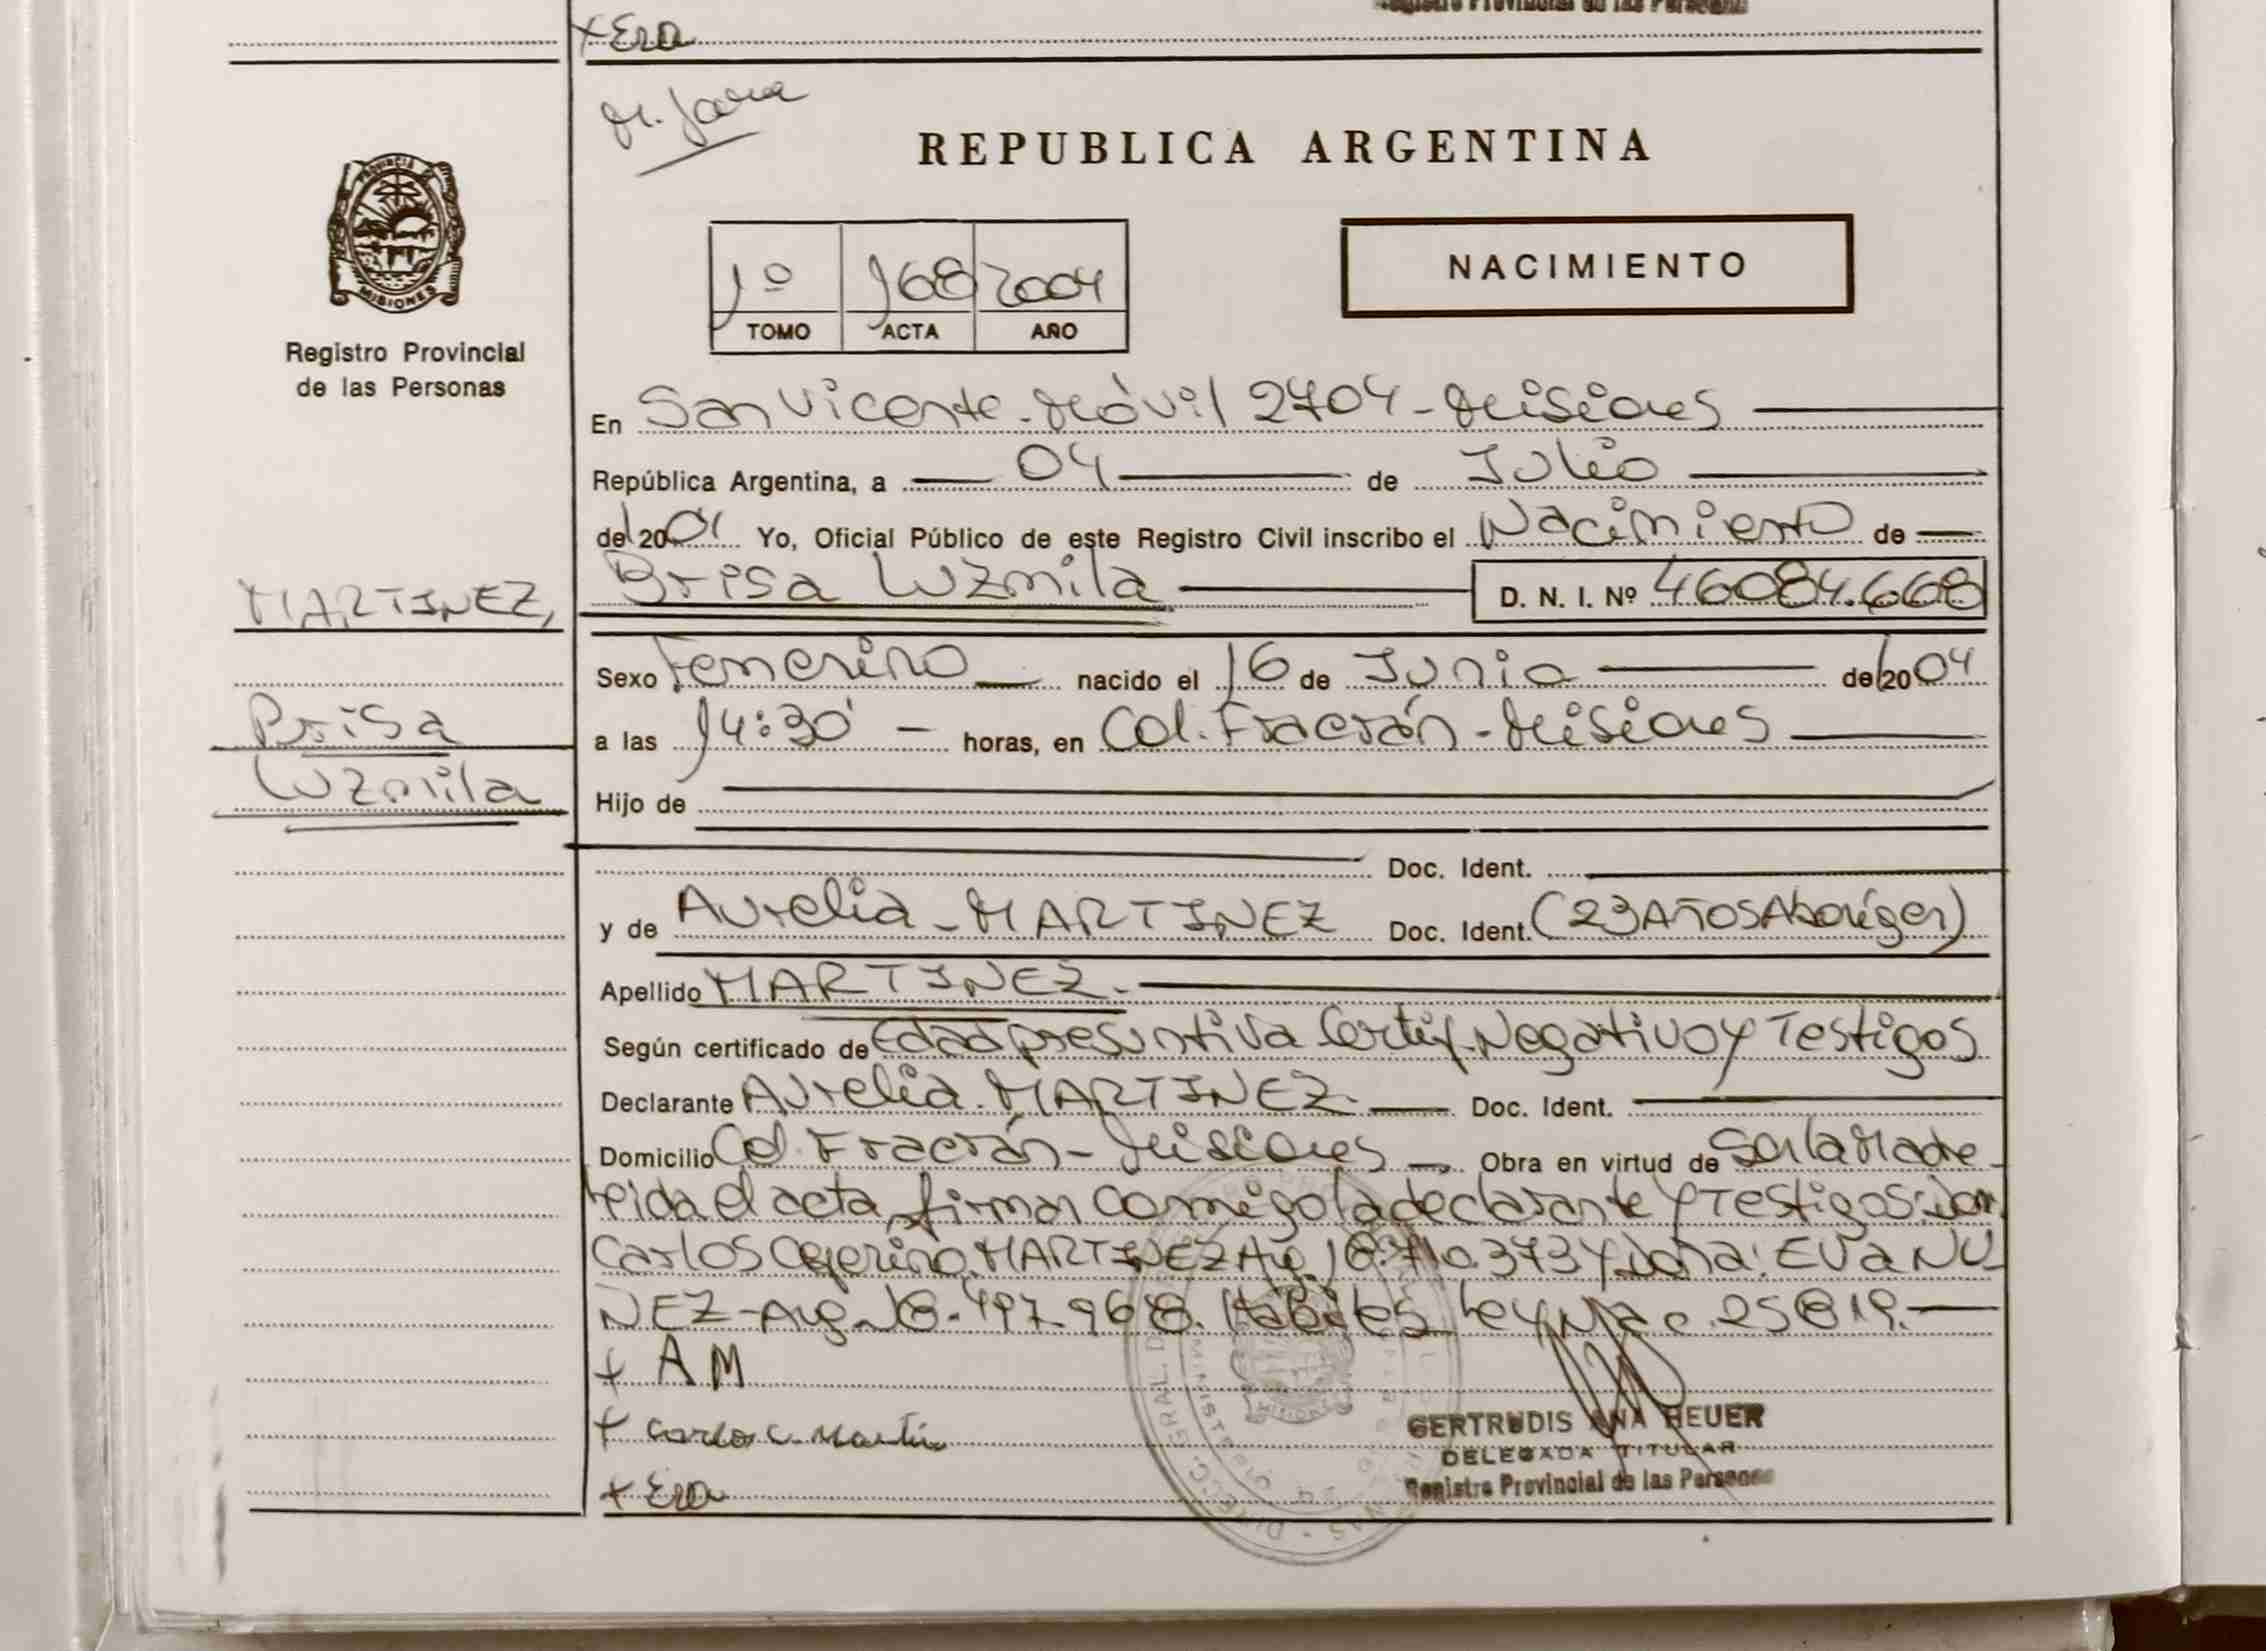 Registro Provincial de las Personas
+ Eva
M. Jara
REPUBLICA ARGENTINA
PROVINCIA DE
MISIONES
Registro Provincial
de las Personas
1º 168 2004
TOMO ACTA AÑO
NACIMIENTO
En San Vicente - Móvil 2704 - Misiones
República Argentina, a 04 de Julio
del 2004 Yo, Oficial Público de este Registro Civil inscribo el Nacimiento de
MARTINEZ,
Brisa Luzmila D. N. I. Nº 46084.668
Sexo Femenino nacido el 16 de Junio del 2004
Brisa
a las 14:30 horas, en Col. Fracrán - Misiones
Luzmila
Hijo de
Doc. Ident.
y de Aurelia - MARTINEZ Doc. Ident. (23 Años Aborigen)
Apellido MARTINEZ.
Según certificado de Edad presuntiva Certif. Negativo y Testigos
Declarante Aurelia. MARTINEZ. Doc. Ident.
Domicilio Col. Fracrán - Misiones Obra en virtud de Ser la Madre
leida el acta, firman conmigo la declarante y Testigos: Don
Carlos Ceferino. MARTINEZ Arg. 18.710.373 y Doña: EVa NU-
NEZ - Arg. 18.497.968. Habiles Ley Nac. 25819.
+ A M
+ Carlos C. Martin
+ Eva
GERTRUDIS ANA HEUER
DELEGADA TITULAR
Registro Provincial de las Personas